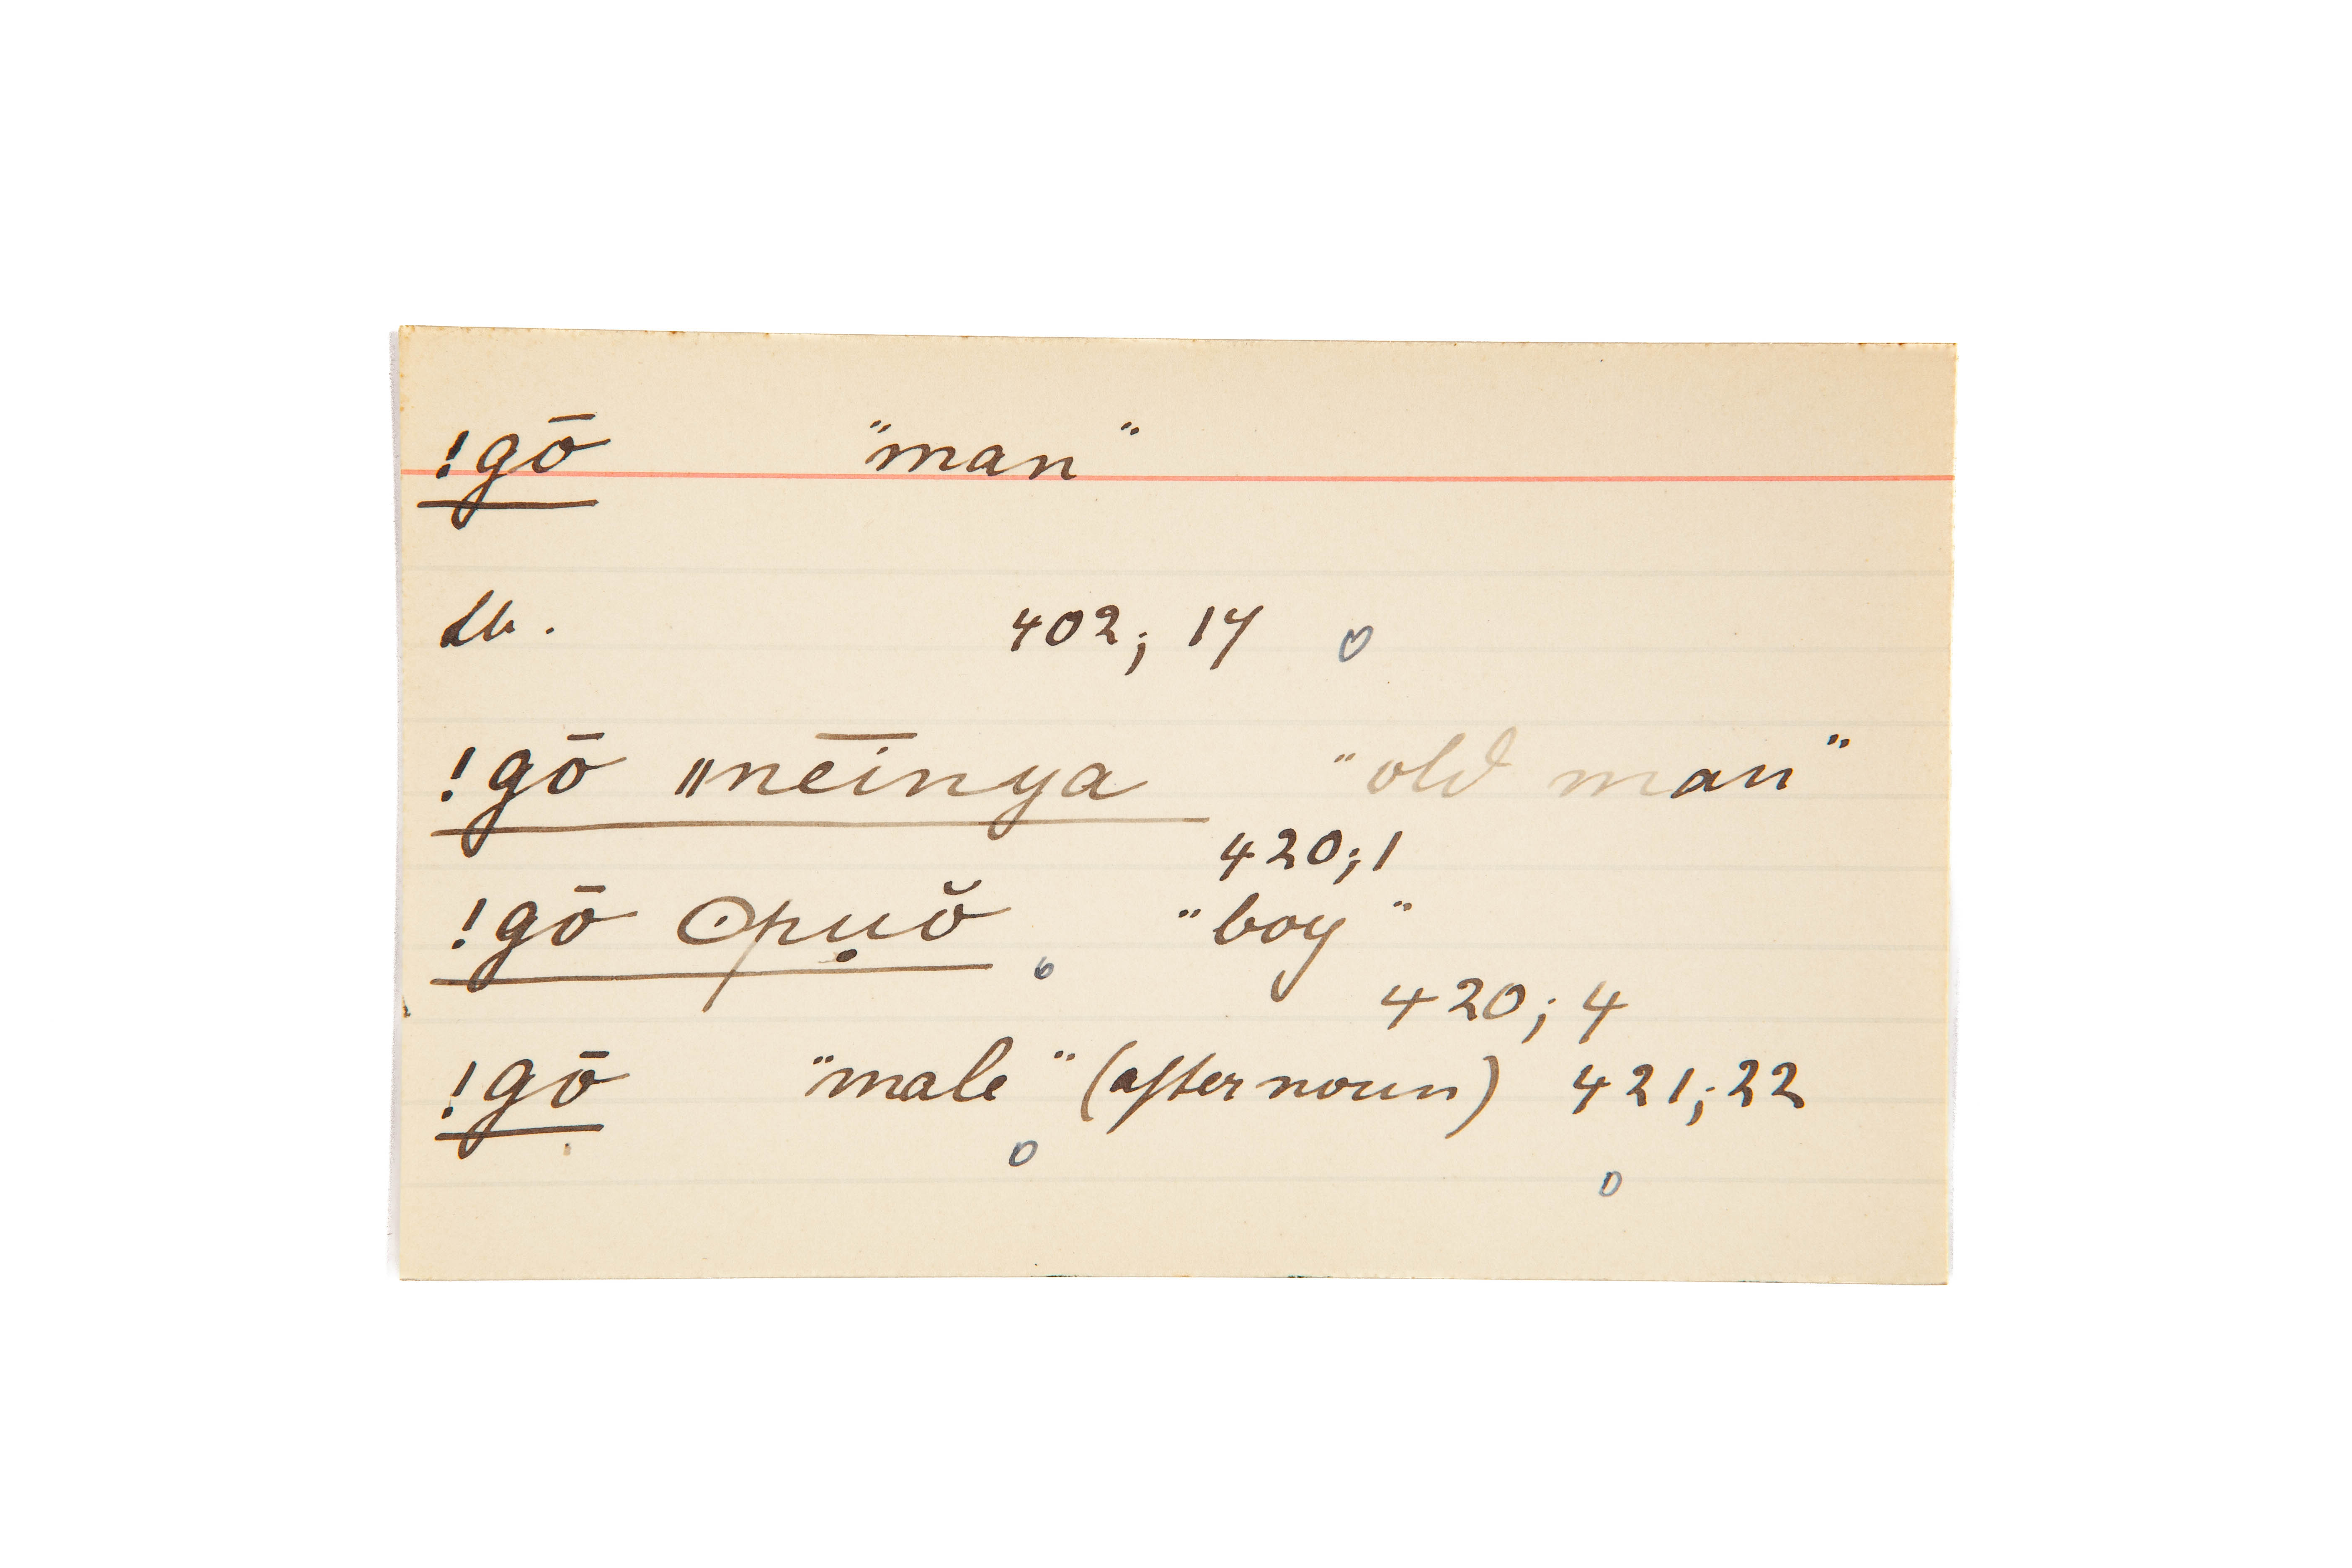 !gō "man"
sb. 402; 17
!gō ǁnēīnya "old man"
420;1
!gō ʘpụŏ "boy"
420; 4
!gō "male" (after noun) 421; 22